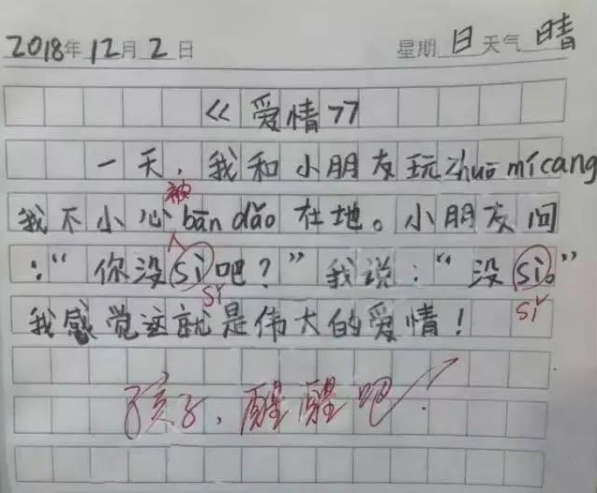 2018年12月2日 星期日 天气 晴
《爱情》
一天，我和小朋友玩zhuō mí cang
我不小心被bān dǎo 在地。小朋友问
：“你没sì吧？”我说：“没sì。”
sǐ sǐ
我感觉这就是伟大的爱情！
孩子，醒醒吧！